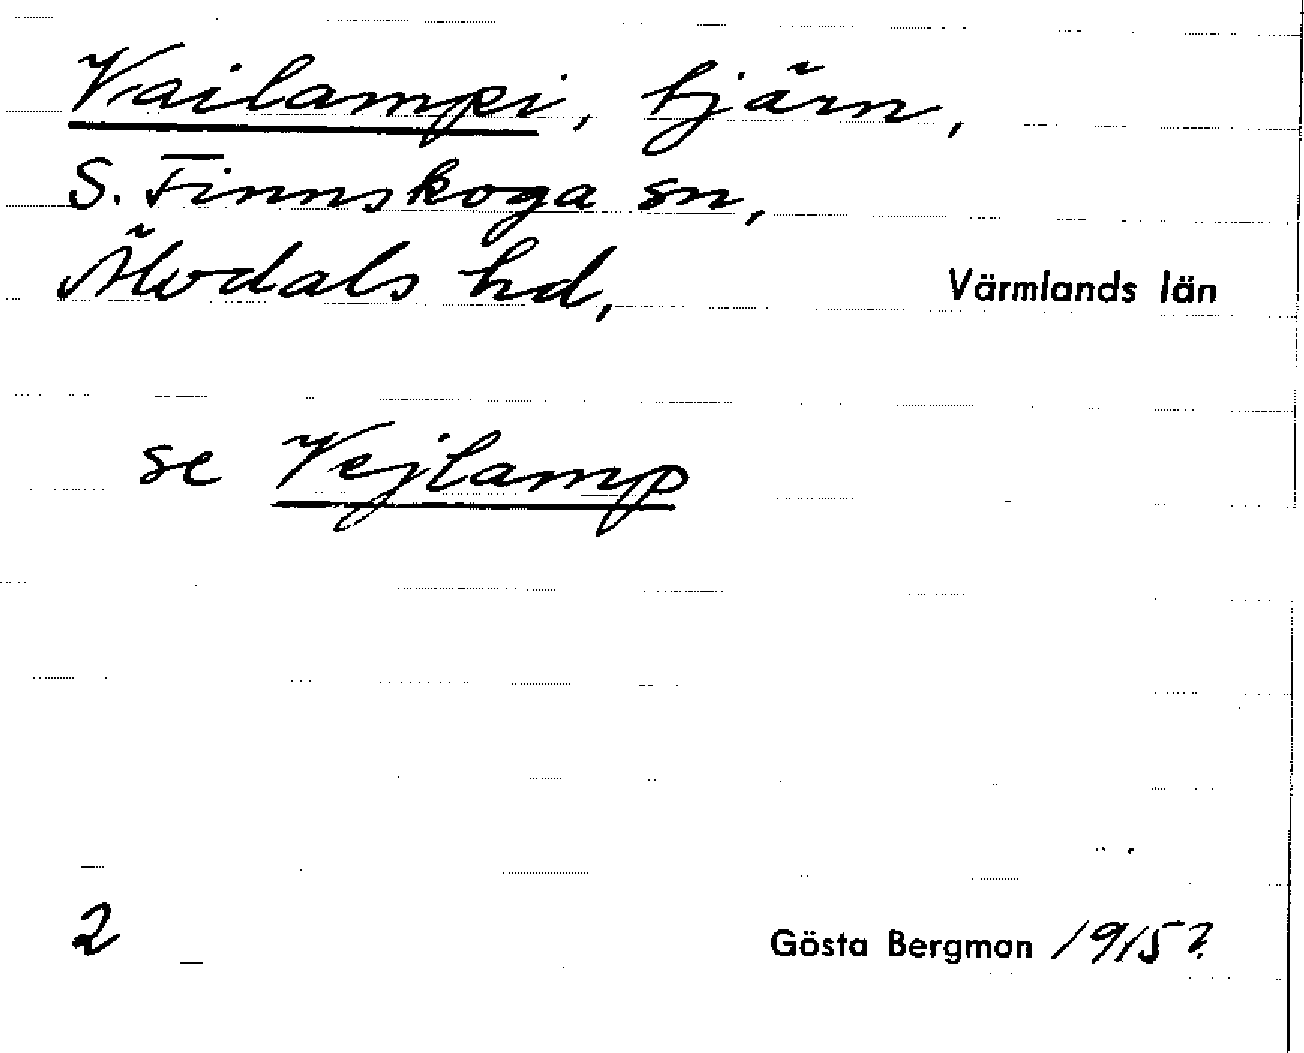 Vailampi, tjärn,
S. Finnskoga sn,
Älvdals hd, Värmlands län
se Vejlamp
2 Gösta Bergman 1915?